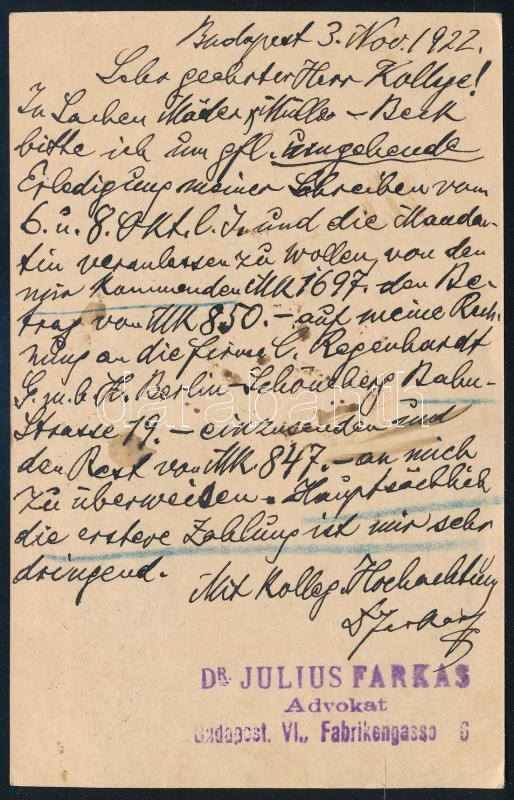 Budapest 3. Nov. 1922.
Sehr geehrter Herr Kollege!
In Sachen Mäder Müller – Beck
bitte ich um gfl. umgehende
Erledigung meiner Schreiben vom
6. u. 8. Okt. l. J. und die Mandan-
tin veranlassen zu wollen, von den
mir kommenden MK 1697. den Be-
trag von MK 850.– auf meine Rech-
nung an die Firma C. Regenhardt
G.m.b.H. Berlin-Schöneberg Bahn-
Strasse 19.– einzusenden und
den Rest von MK. 847.– an mich
zu überweisen. Hauptsächlich
die erstere Zahlung ist mir sehr
dringend.
Mit Kolleg. Hochachtung
Dr Farkas
darabanth
DR. JULIUS FARKAS
Advokat
Budapest, VI., Fabrikengasse 6